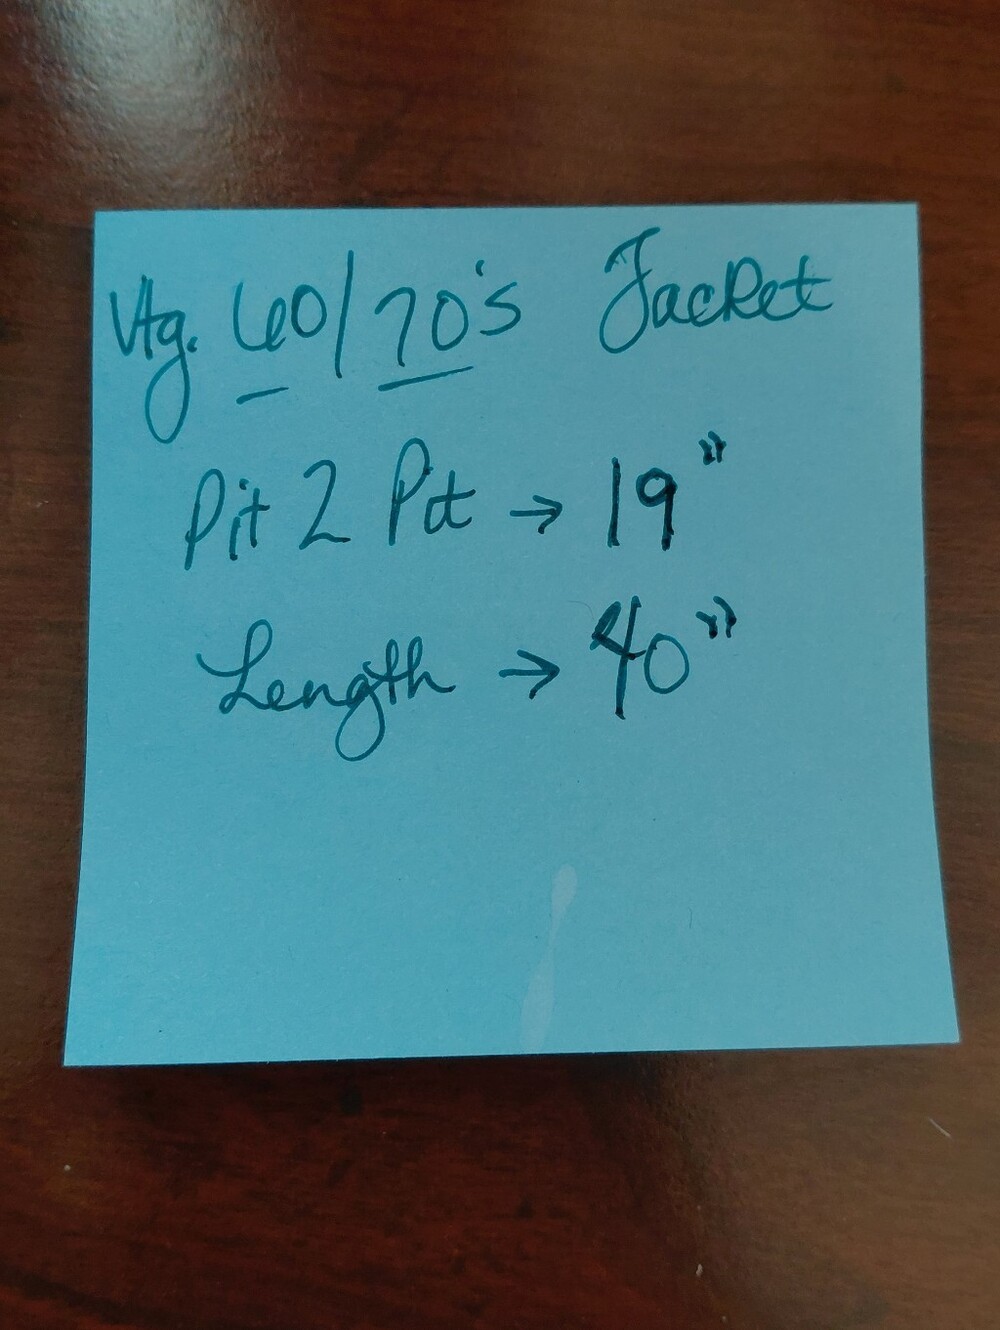 Vtg. 60/70's Jacket
Pit 2 Pit → 19"
Length → 40"